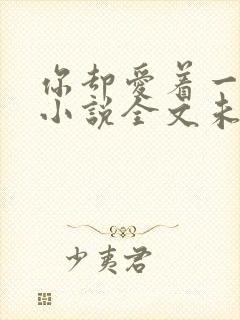 你却爱着一
小说全文未
少夷君